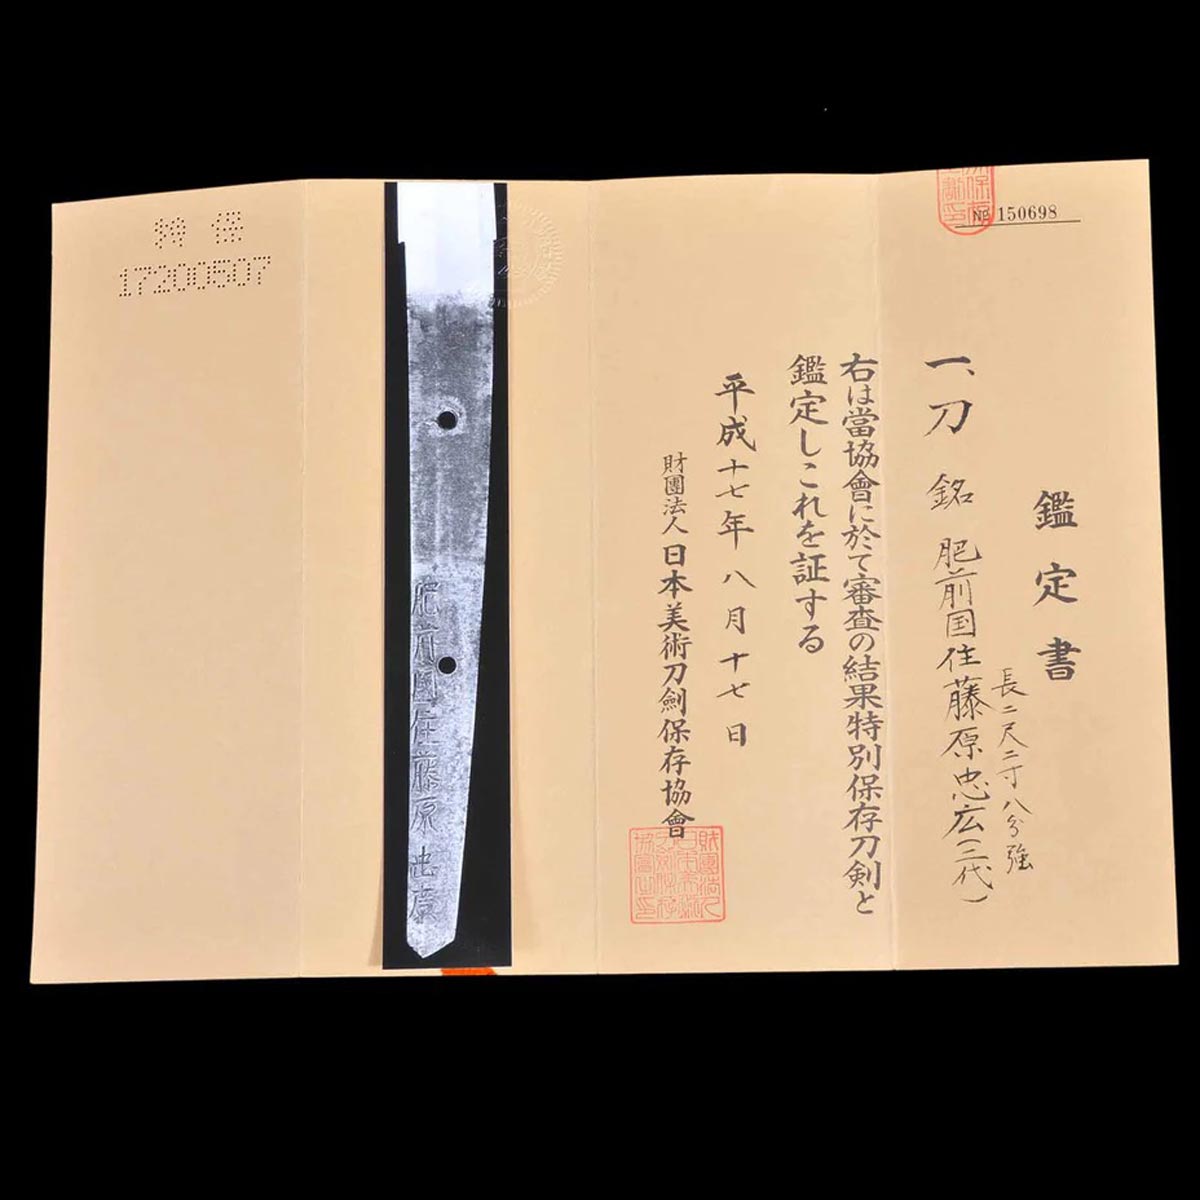 № 150698
鑑定書
一、刀 銘 肥前国住藤原忠広(二代)
長二尺二寸八分強
右は當協會に於て審査の結果特別保存刀剣と
鑑定しこれを証する
平成十七年八月十七日
財團法人 日本美術刀劍保存協會
財團法人日本美術刀劍保存協會之印
肥前國住藤原忠廣
特保
17200507